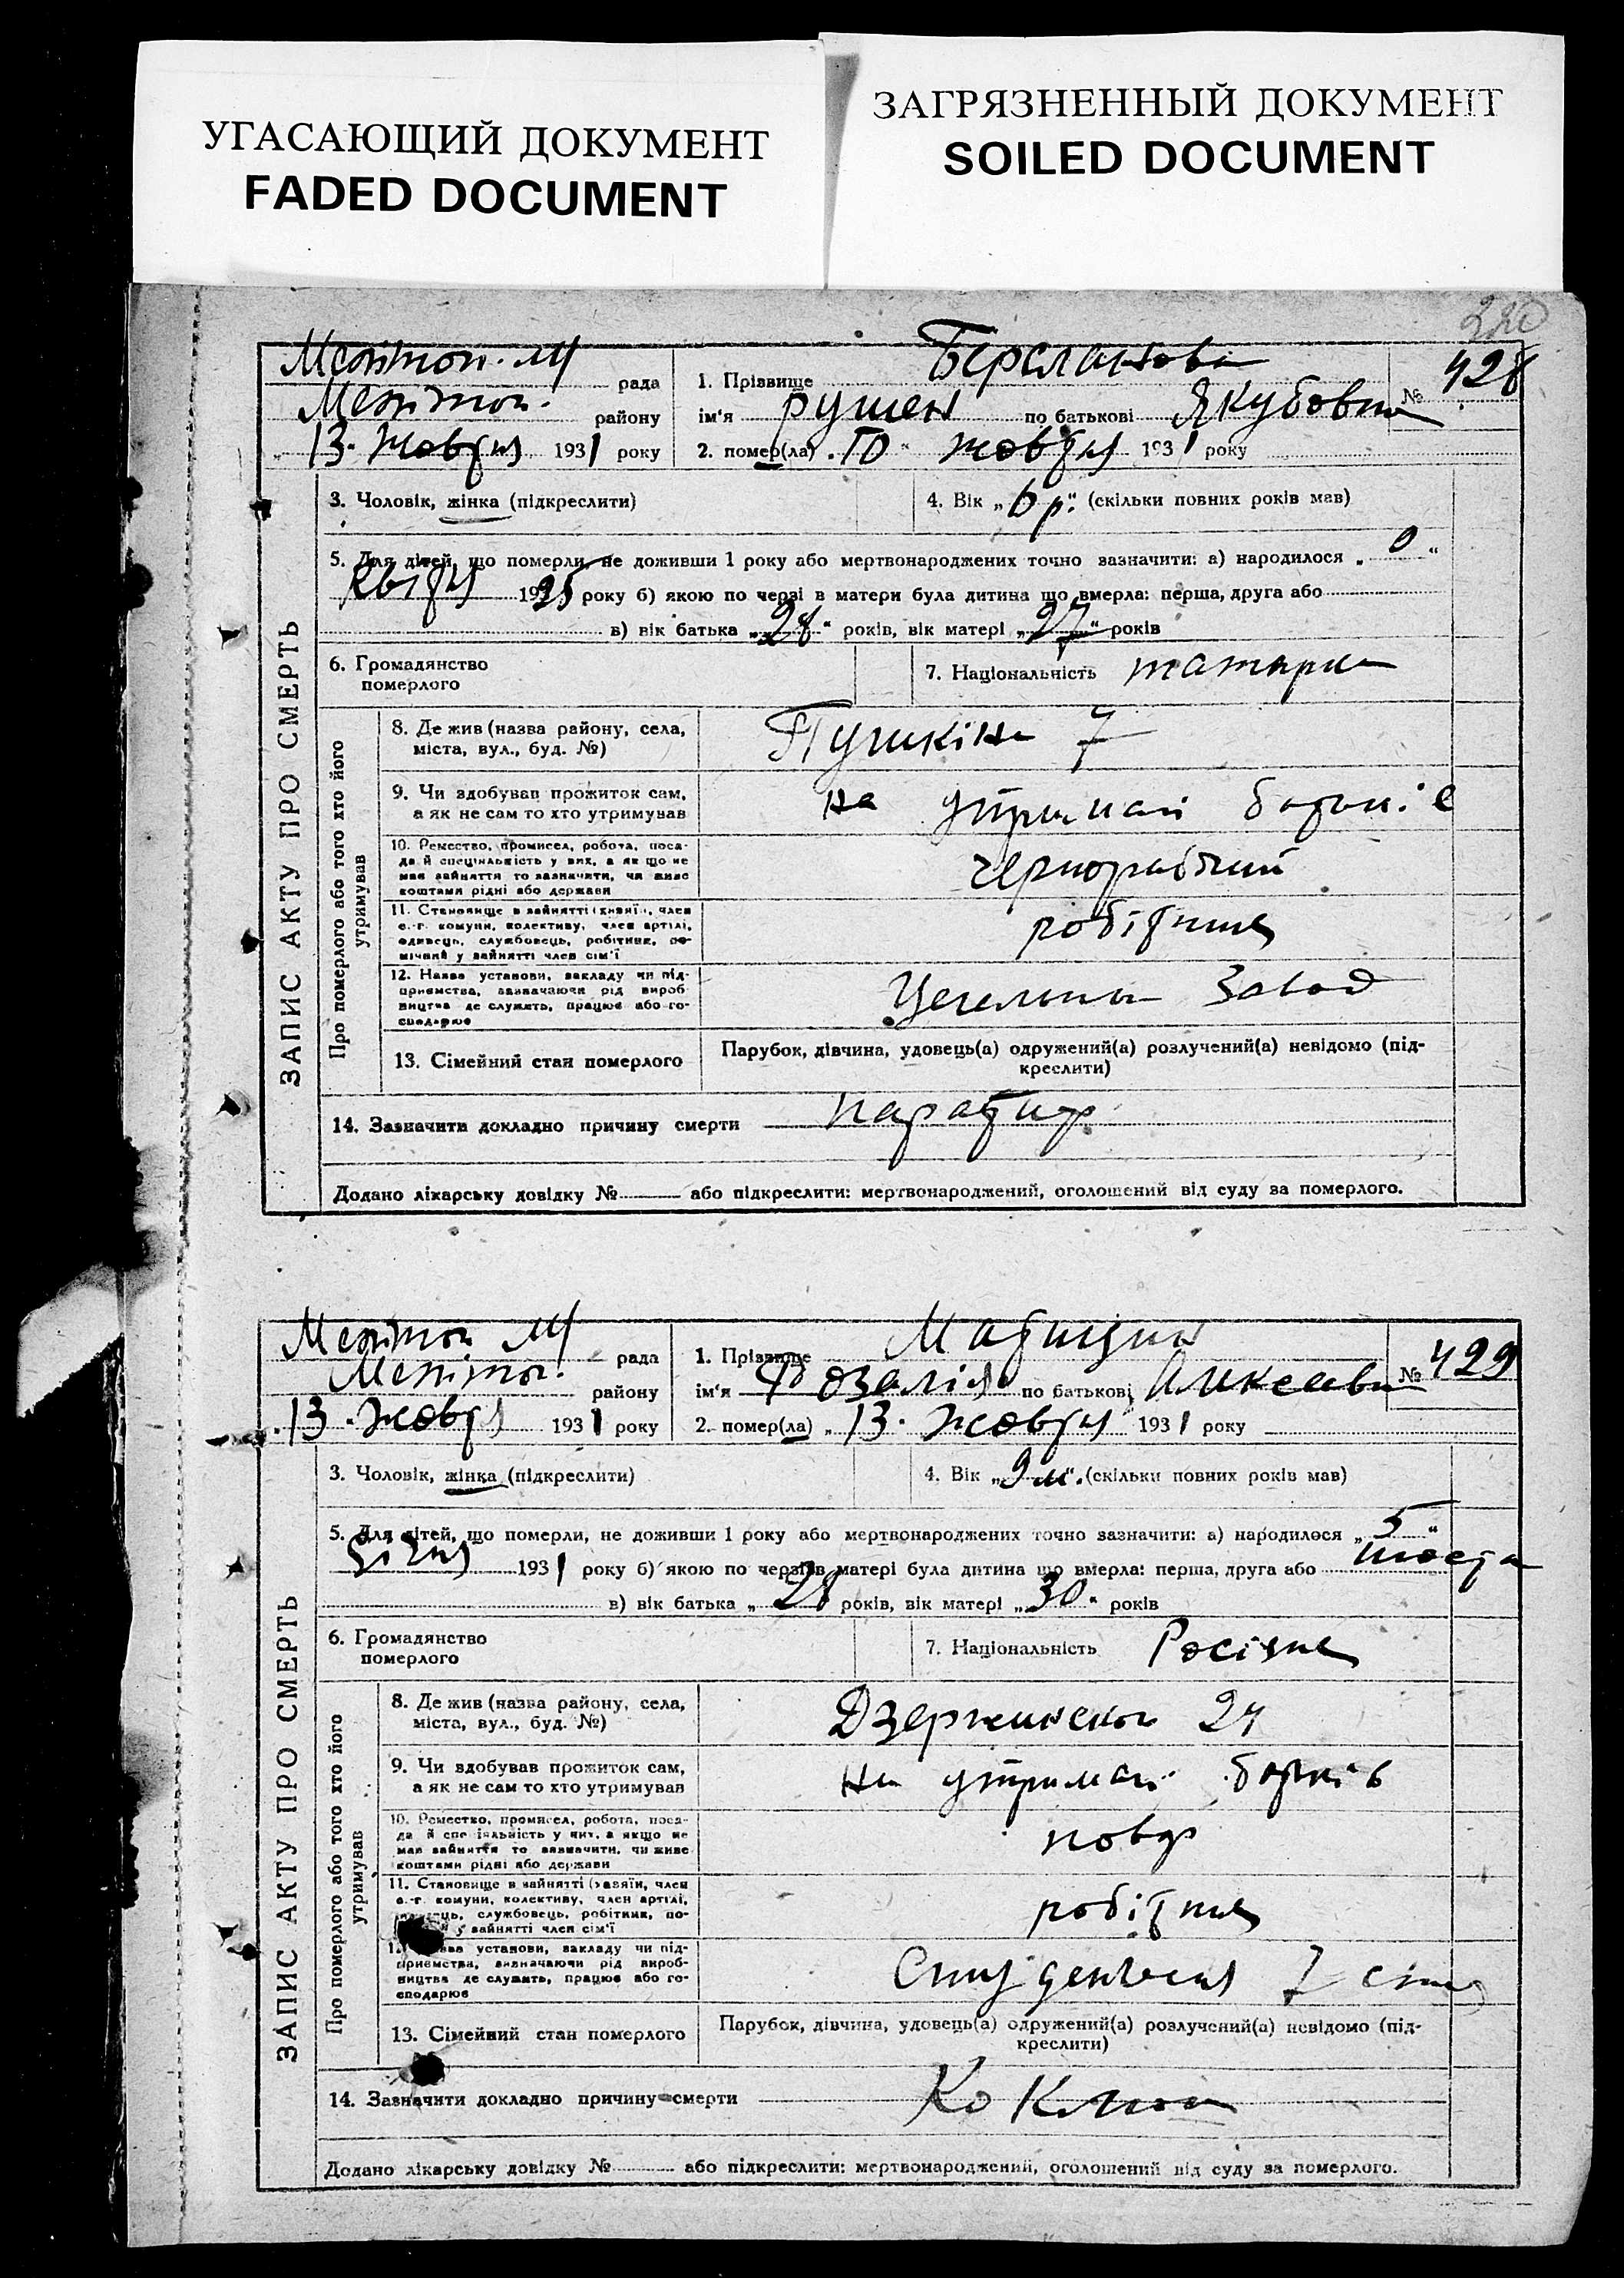 УГАСАЮЩИЙ ДОКУМЕНТ
FADED DOCUMENT
ЗАГРЯЗНЕННЫЙ ДОКУМЕНТ
SOILED DOCUMENT
220
ЗАПИС АКТУ ПРО СМЕРТЬ
рада
району
13 Жовтня 1931 року
1. Прізвище Берсланова
№ 428
ім'я Рушен по батькові Якубовна
2. помер(ла) 10 жовтня 1931 року
3. Чоловік, жінка (підкреслити)
4. Вік „6 р." (скільки повних років мав)
5. Для дітей, що померли, не доживши 1 року або мертвонароджених точно зазначити: а) народилося „ "
квітня 1925 року б) якою по черзі в матери була дитина що вмерла: перша, друга або
в) вік батька „28" років, вік матері „27" років
6. Громадянство
померлого
7. Національність татарка
Про померлого або того хто його
утримував
8. Де жив (назва району, села,
міста, вул., буд. №)
Пушкіна 7
9. Чи здобував прожиток сам,
а як не сам то хто утримував
на утриман батьків
10. Ремество, промисел, робота, поса-
да й спеціяльність у них, а як що не
мав зайняття то зазначити, чи живе
коштами рідні або держави
чернорабочий
11. Становище в зайнятті (хазяїн, член
с.-г. комуни, колективу, член артілі,
одинець, службовець, робітник, по-
мічний у зайнятті член сім'ї
робітник
12. Назва установи, закладу чи під-
приємства, зазначаючи рід вироб-
ництва де служить, працює або го-
сподарює
Цегельный Завод
13. Сімейний стан померлого
Парубок, дівчина, удовець(а) одружений(а) розлучений(а) невідомо (під-
креслити)
14. Зазначити докладно причину смерти
паратиф
Додано лікарську довідку № або підкреслити: мертвонароджений, оголошений від суду за померлого.
ЗАПИС АКТУ ПРО СМЕРТЬ
рада
району
13 Жовтня 1931 року
1. Прізвище
№ 429
ім'я Розалія по батькові
2. помер(ла) „13 Жовтня 1931 року
3. Чоловік, жінка (підкреслити)
4. Вік „9 м". (скільки повних років мав)
5. Для дітей, що померли, не доживши 1 року або мертвонароджених точно зазначити: а) народилося „5"
Січня 1931 року б) якою по черзі в матері була дитина що вмерла: перша, друга або
в) вік батька „28 років, вік матері „30" років
6. Громадянство
померлого
7. Національність Росіянк
Про померлого або того хто його
утримував
8. Де жив (назва району, села,
міста, вул., буд. №)
Дзержинского 24
9. Чи здобував прожиток сам,
а як не сам то хто утримував
на утриман батьків
10. Ремество, промисел, робота, поса-
да й спеціяльність у них, а якщо не
мав зайняття то зазначити, чи живе
коштами рідні або держави
повар
11. Становище в зайнятті (хазяїн, член
с.-г. комуни, колективу, член артілі,
службовець, робітник, по-
у зайнятті член сім'ї
робітник
установи, закладу чи під-
приємства, зазначаючи рід вироб-
ництва де служить, працює або го-
сподарює
13. Сімейний стан померлого
Парубок, дівчина, удовець(а) одружений(а) розлучений(а) невідомо (під-
креслити)
14. Зазначити докладно причину смерти
Коклюш
Додано лікарську довідку № або підкреслити: мертвонароджений, оголошений від суду за померлого.